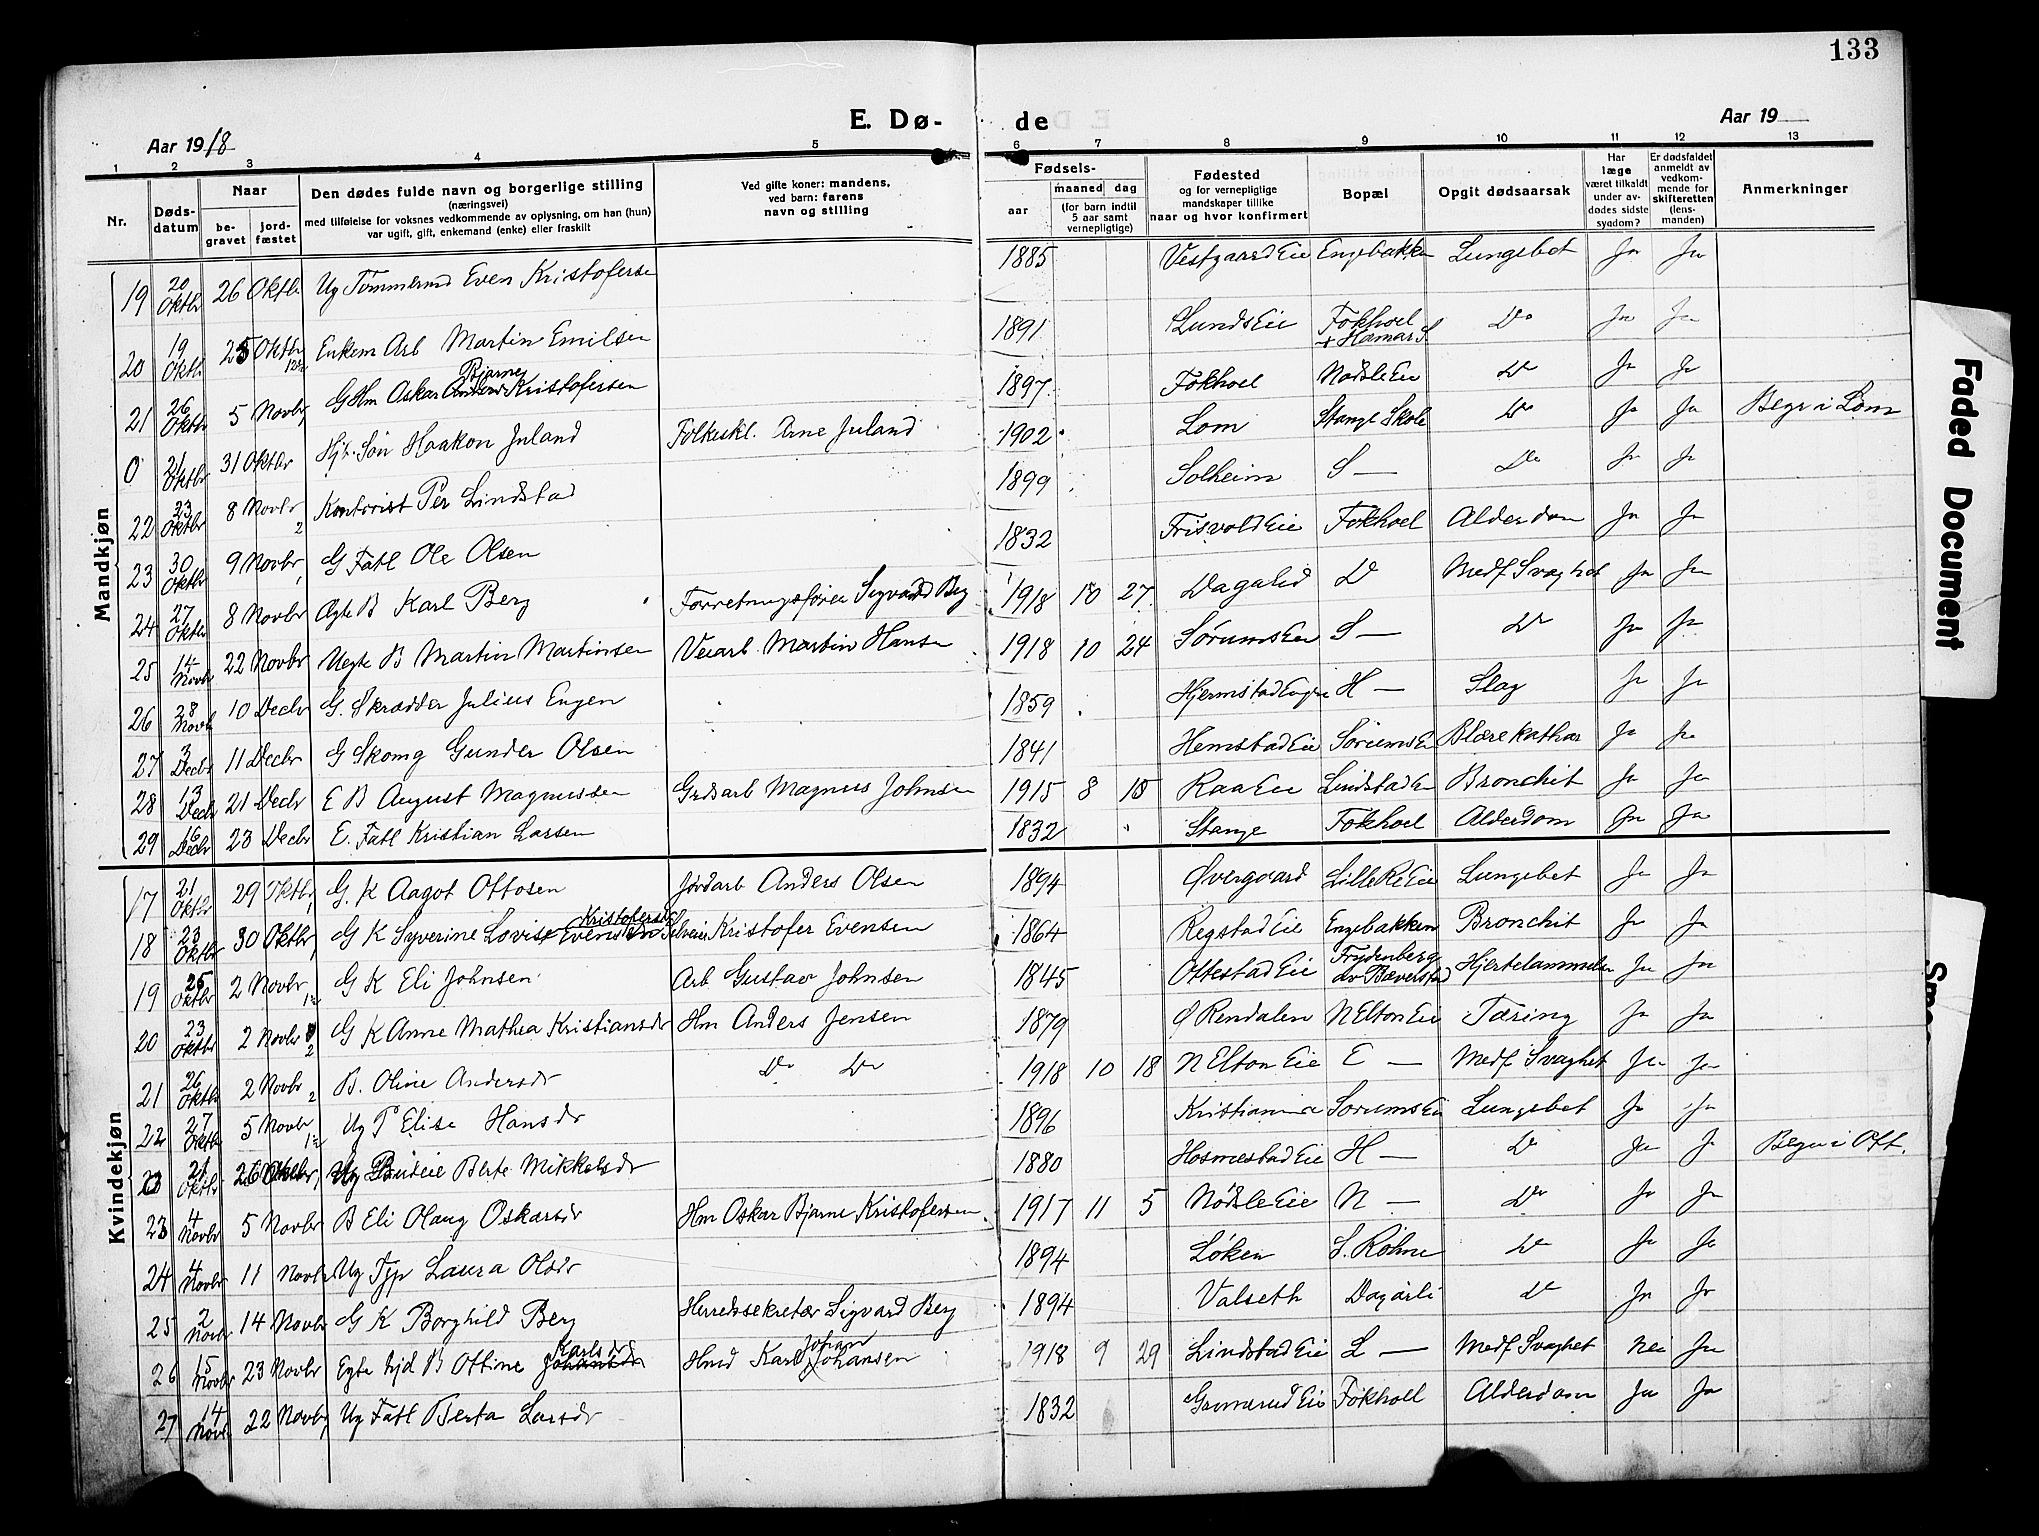 133
E. Dø- de
Aar 1918
Aar 19
1 2 3 4 5 6 7 8 9 10 11 12 13
Nr.
Døds-datum
Naar
be-gravet
jord-fæstet
Den dødes fulde navn og borgerlige stilling
(næringsvei)
med tilføielse for voksnes vedkommende av oplysning, om han (hun)
var ugift, gift, enkemand (enke) eller fraskilt
Ved gifte koner: mandens,
ved barn: farens
navn og stilling
Fødsels-
aar
maaned dag
(for barn indtil 5 aar samt vernepligtige)
Fødested
og for vernepligtige
mandskaper tillike
naar og hvor konfirmert
Bopæl
Opgit dødsaarsak
Har læge været tilkaldt under av-dødes sidste sygdom?
Er dødsfaldet anmeldt av vedkom-mende for skifteretten (lens-manden)
Anmerkninger
Mandkjøn
19 20 Oktbr 26 Oktbr Ug Tømmermd Even Kristofersen 1885 Vestgaard Eie Engebakken Lungebet Ja Ja
20 19 Oktbr 25 Oktbr Enkem Arb Martin Emilsen 1891 Lunds Eie Fokhoel + Hamar S Do Ja Ja
21 26 Oktbr 5 Novbr G Hm Oskar Bjarne Kristofersen 1897 Fokhoel Nødsle Eie Do Ja Ja
0 21 Oktbr 31 Oktbr Hj. Søn Haakon Juland Folkeskl. Arne Juland 1902 Lom Stange Skole Do Ja Ja Begr i Lom
22 23 Oktbr 8 Novbr 2 Kontorist Per Lindstad 1899 Solheim S — Do Ja Ja
23 30 Oktbr 9 Novbr G Fatl Ole Olsen 1832 Frisvold Eie Fokhoel Alderdom Ja Ja
24 27 Oktbr 8 Novbr Ægte B Karl Berg Forretningsfører Sigvard Berg 1918 10 27 Dagalid Do Medf Svaghet Ja Ja
25 14 Novbr 22 Novbr Uegte B Martin Martinsen Veiarb Martin Hansen 1918 10 24 Sørums Eie S — Do Ja Ja
26 28 Novbr 10 Decbr G. Skrædder Julius Engen 1859 Hjermstad Engen H — Slag Ja Ja
27 3 Decbr 11 Decbr G Skomg Gunder Olsen 1841 Hemstad Eie Sørums E Blærekathar Ja Ja
28 13 Decbr 21 Decbr E B August Magnussen Grdsarb Magnus Johnsen 1915 8 18 Raa Eie Lindstad E Bronchit Ja Ja
29 16 Decbr 23 Decbr E. Fatl Kristian Larsen 1832 Stange Fokhoel Alderdom Ja Ja
Kvindekjøn
17 21 Oktbr 29 Oktbr G. K Aagot Ottosen Jordarb Anders Olsen 1894 Øvergaard Lille Re Eie Lungebet Ja Ja
18 23 Oktbr 30 Oktbr G K Syverine Lovise Evensen Kristofersen Selveier Kristofer Evensen 1864 Regstad Eie Engebakken Bronchit Ja Ja
19 25 Oktbr 2 Novbr G K Eli Johnsen Arb Gustav Johnsen 1845 Ottestad Eie Frydenberg av Bæverstad Hjertelammelse Ja Ja
20 23 Oktbr 2 Novbr 2 G K Anne Mathea Kristiansdr Hm Anders Jensen 1879 Ø Rendalen N Elton Eie Tæring Ja Ja
21 26 Oktbr 2 Novbr 2 B. Oline Andersdr Do Do 1918 10 18 N Elton Eie E — Medf Svaghet Ja Ja
22 27 Oktbr 5 Novbr Ug P Elise Hansdr 1896 Kristiania Sørums Eie Lungebet Ja Ja
0 21 Oktbr 26 Oktbr Ug Berte Mikkelsdr 1880 Hosmestad Eie H — Do Ja Ja Begr i Ott.
23 4 Novbr 5 Novbr B Eli Olaug Oskarsdr Hm Oskar Bjarne Kristofersen 1917 11 5 Nødsle Eie N — Do Ja Ja
24 4 Novbr 11 Novbr Ug Tjp Laura Olsdr 1894 Løken S. Rohne Do Ja Ja
25 2 Novbr 14 Novbr G K Borghild Berg Herredssekretær Sigvard Berg 1894 Valseth Dagarli do Ja Ja
26 15 Novbr 23 Novbr Egte hjd B Ottine Johansdr Karlsdr Hmd Karl Johan Johansen 1918 9 29 Lindstad Eie L — Medf Svaghet Nei Ja
27 14 Novbr 22 Novbr Ug Fatl Berta Larsdr 1832 Eie Fokhoel Alderdom Ja Ja
Faded Document